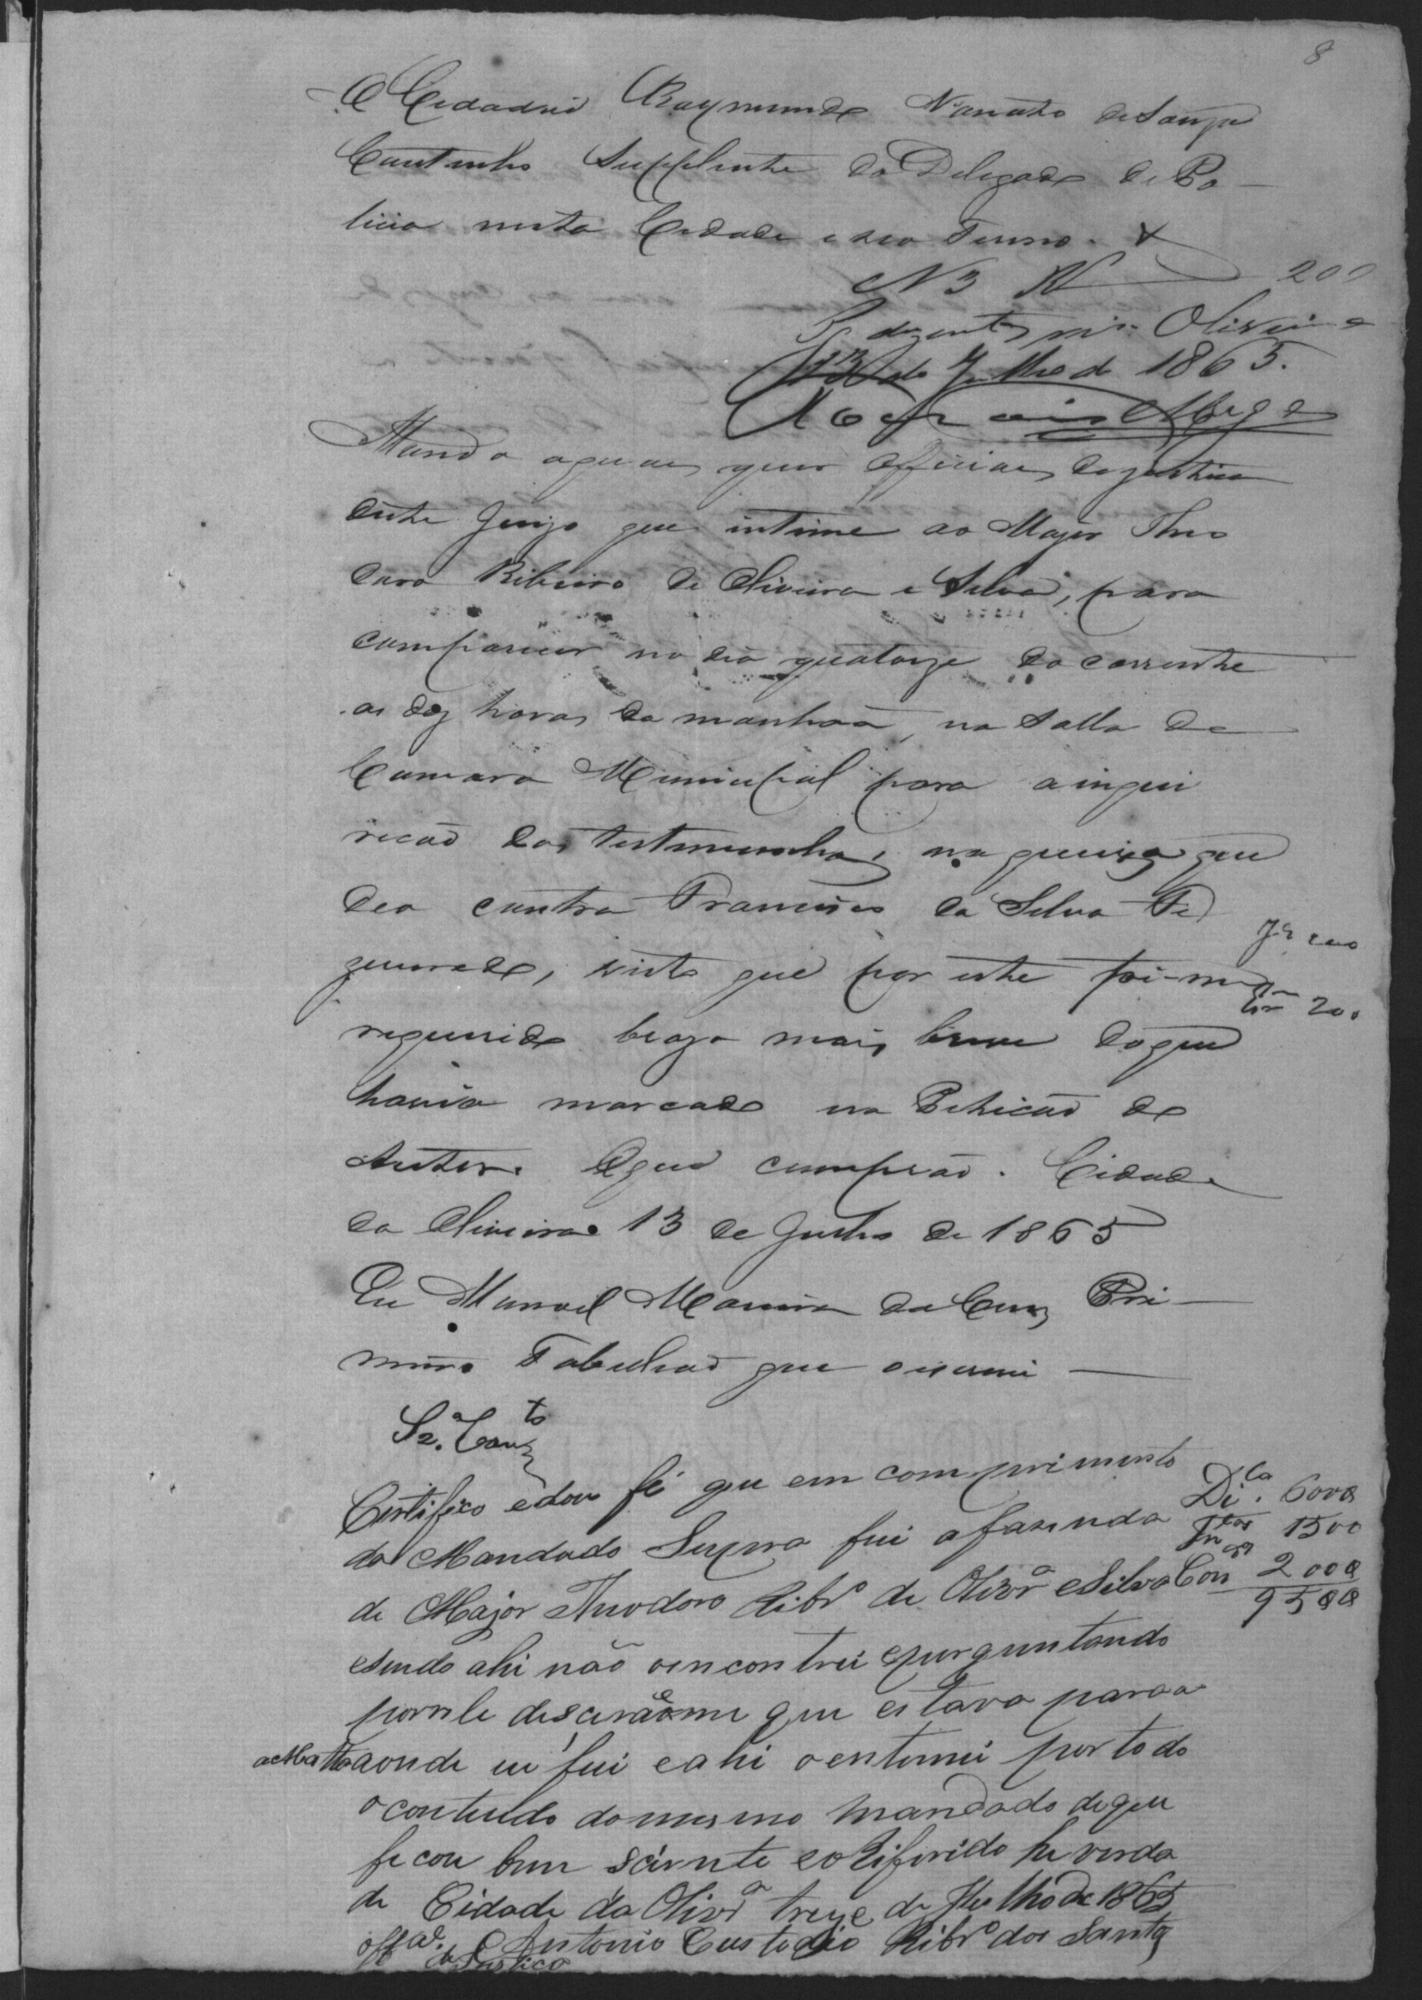 8
O Cidadão Raymundo Nonato de Souza
Coutinho Supplente do Delegado de Po-
licia nesta Cidade e seo Termo.
N 3 200
Pg duzentos rs. Oliveira
13 de Julho de 1865.
Mando aquaes quer Officiaes dejustiça
deste Juizo que intime ao Major Theo
doro Ribeiro de Oliveira e Silva, para
comparecer no dia quatorze do corrente
as dez horas da manhaã, na Salla da
Camara Municipal para ainqui
rição das testemunhas, na queixa que
deo contra Francisco da Silva Fi
gueiredo, visto que por este foi-me
200
requerido prazo mais breve doque
havia marcado na Petição do
Autor. Oque cumprão. Cidade
da Oliveira 13 de Julho de 1865
Eu Manoel Moreira da Cruz Pri-
meiro Tabelliaõ que oescrevi
Sza. Coutto
Certifico edou fé que em comprimento
do Mandado Supra fui afazenda
de Major Theodoro Ribro de Olivra eSilva
Dica. 6000
1500
Con 2000
9500
esendo ahi não oencontrei eperguntando
porele disceraõme que estava para a
aMatta aonde eu fui eahi oentemei por todo
ocontiudo domesmo mandado deque
ficou bem sciente eoRiferido he verda
de Cidade da Olivra treze de Julho de 1865
offal. de Justiça
Antonio Custodio Ribro dos Santos